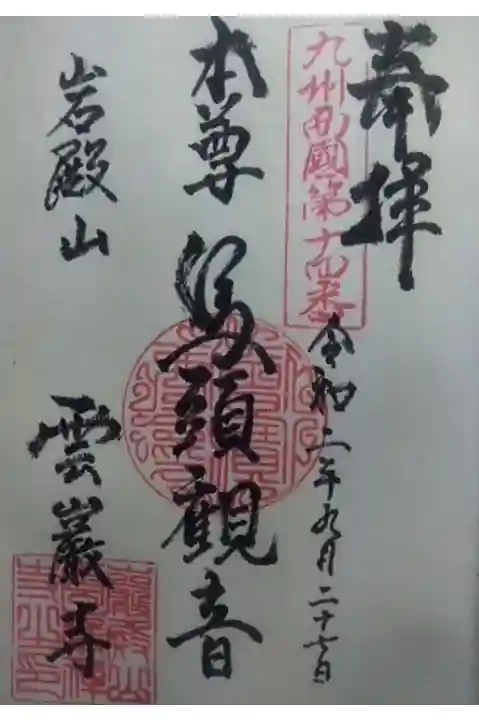 奉拝
九州西国第十四番
令和二年九月二十六日
本尊 馬頭観音
岩殿山 雲巌寺